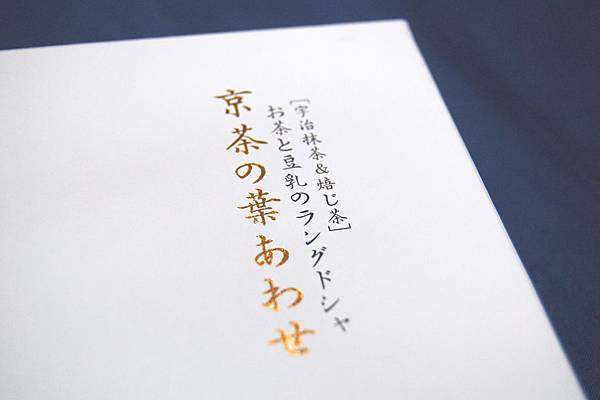 [宇治抹茶&焙じ茶]
お茶と豆乳のラングドシャ
京茶の葉あわせ